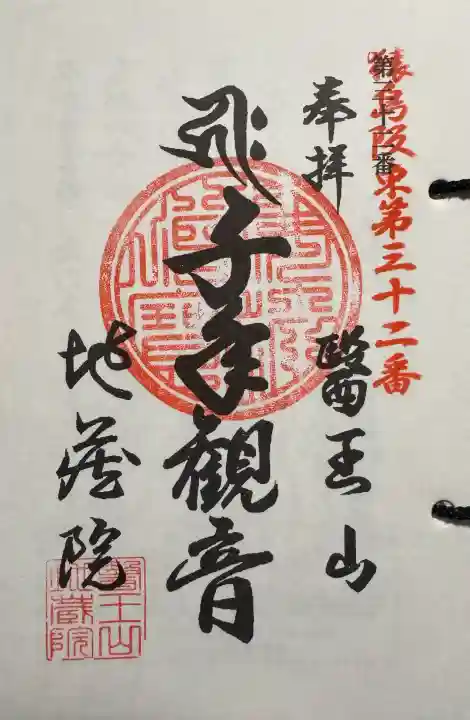 猿島阪東第三十二番
奉拝
醫王山
千手観音
地蔵院
醫王山
地蔵院